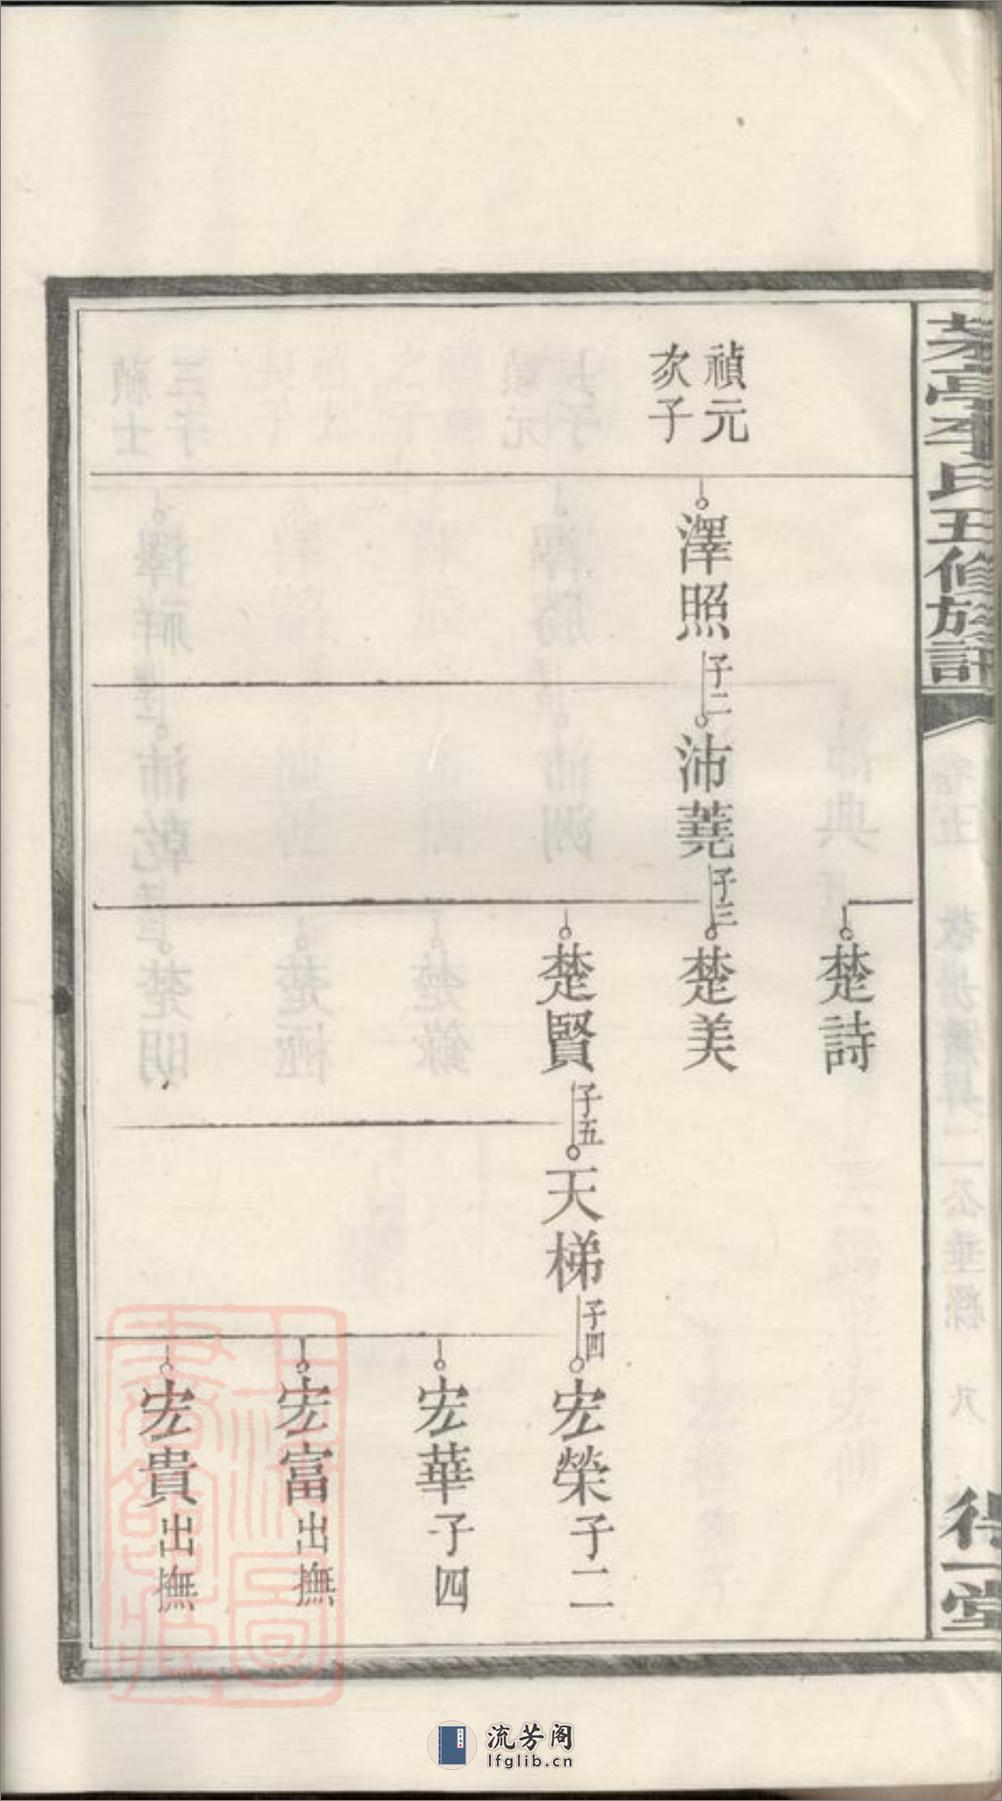 茶亭李氏五修族譜
得一堂
禎元
次子
澤照
子二
沛蕘
子三
楚詩
楚美
楚賢
子五
天梯
子四
宏榮子二
宏華子四
宏富出撫
宏貴出撫
上海圖
書館藏
流芳阁
lfglib.cn